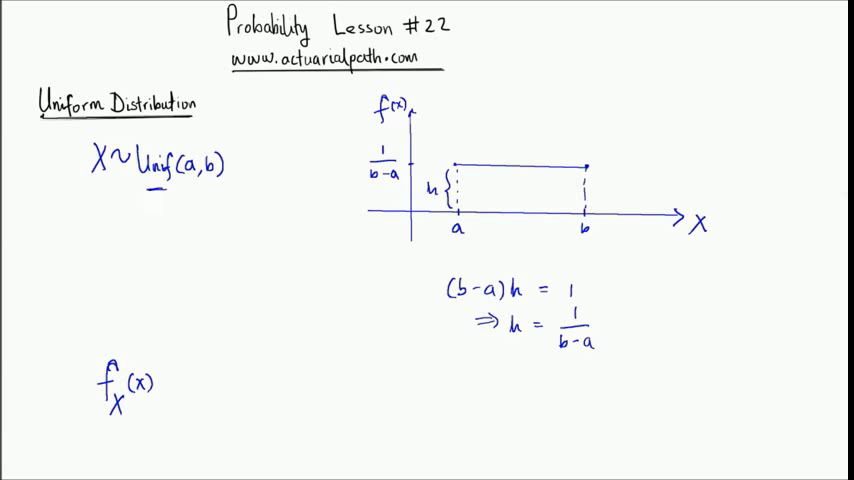 Probability Lesson #22
www.actuarialpath.com
Uniform Distribution
X ~ Unif(a,b)
f(x)
1/(b-a)
h
a b
X
(b-a)h = 1
⇒ h = 1/(b-a)
f_X(x)